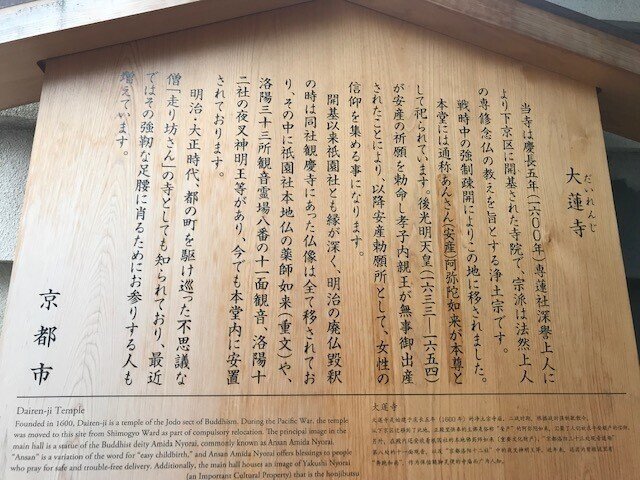 大蓮寺
だいれんじ
当寺は慶長五年(一六〇〇年)専蓮社深誉上人に
より下京区に開基された寺院で、宗派は法然上人
の専修念仏の教えを旨とする浄土宗です。
戦時中の強制疎開によりこの地に移されました。
本堂には通称あんさん(安産)阿弥陀如来が本尊と
して祀られています。後光明天皇(一六三三―一六五四)
が安産の祈願を勅命し孝子内親王が無事御出産
されたことにより、以降安産勅願所として、女性の
信仰を集める事になります。
開基以来祇園社とも縁が深く、明治の廃仏毀釈
の時は同社観慶寺にあった仏像は全て移されてお
り、その中に祇園社本地仏の薬師如来(重文)や、
洛陽三十三所観音霊場八番の十一面観音、洛陽十
二社の夜叉神明王等があり、今でも本堂内に安置
されております。
明治・大正時代、都の町を駆け巡った不思議な
僧「走り坊さん」の寺としても知られており、最近
ではその強靭な足腰に肖るためにお参りする人も
増えています。
京都市
Dairen-ji Temple
Founded in 1600, Dairen-ji is a temple of the Jodo sect of Buddhism. During the Pacific War, the temple
was moved to this site from Shimogyo Ward as part of compulsory relocation. The principal image in the
main hall is a statue of the Buddhist deity Amida Nyorai, commonly known as Ansan Amida Nyorai.
"Ansan" is a variation of the word for "easy childbirth," and Ansan Amida Nyorai offers blessings to people
who pray for safe and trouble-free delivery. Additionally, the main hall houses an image of Yakushi Nyorai
(an Important Cultural Property) that is the honjibutsu
大蓮寺